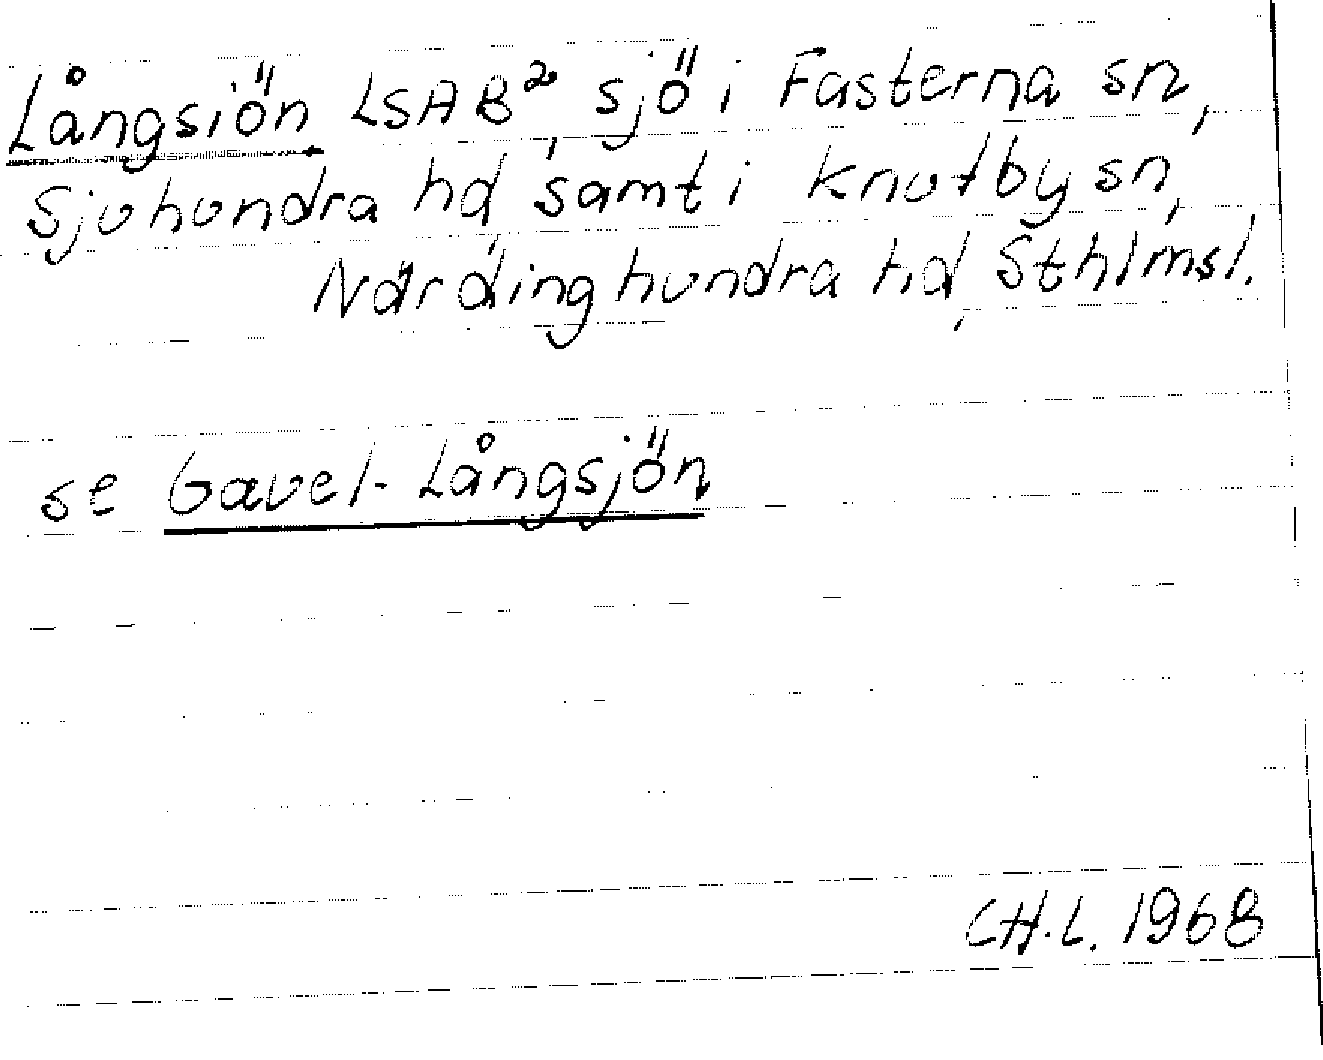 Långsjön LSAB², sjö i Fasterna sn,
Sjuhundra hd, samt i Knutby sn,
Närdinghundra hd, Sthlmsl.
se Gavel-Långsjön
CH.L. 1968